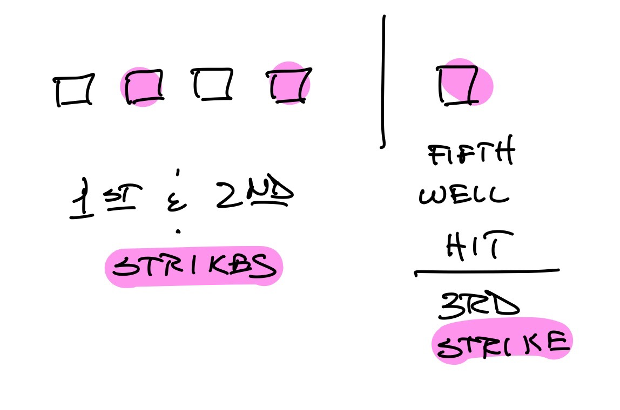 1ST & 2ND
STRIKES
FIFTH
WELL
HIT
3RD
STRIKE